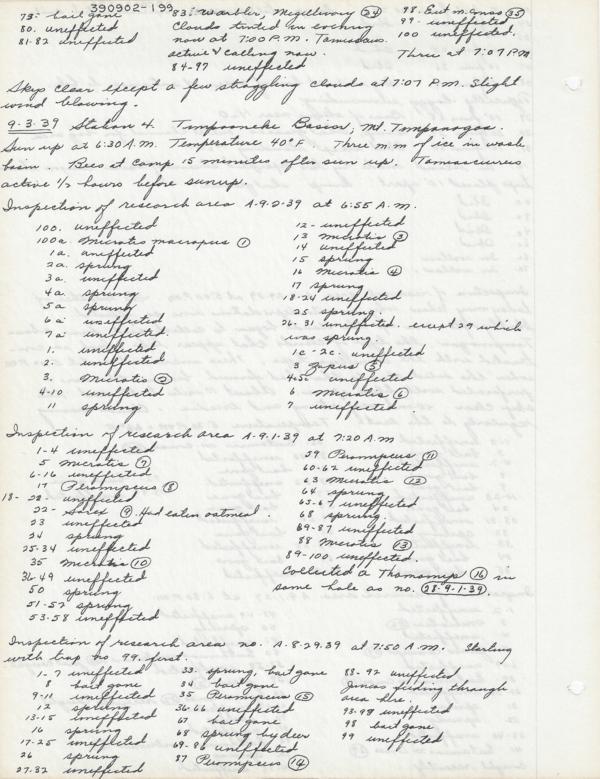 390902-199
73: bait gone
80. uneffected
81-82 uneffected
83: Warbler, Megillivary (24)
Clouds tinted in evening
now at 7:00 P.M. Tamiasci.
active & calling now.
84-97 uneffected
98. Eut m. gnos (25)
99 - uneffected
100 uneffected.
Three at 7:07 P.M
Skys clear except a few straggling clouds at 7:07 P.M. Slight
wind blowing.
9-3-39 Station 4. Timpooneke Basin, Mt. Timpanogos.
Sun up at 6:30 A.M. Temperature 40° F. Three m.m of ice in wash
basin. Bees at camp 15 minutes after sun up. Tamiasciureus
active 1/2 hours before sunup.
Inspection of research area A-9-2-39 at 6:55 A.M.
100. uneffected
100a. Microtis macropus (1)
1a. uneffected
2a. sprung
3a. uneffected
4a sprung
5a sprung
6a uneffected
7a uneffected
1. uneffected
2. uneffected
3. Microtis (2)
4-10 uneffected
11 sprung
12 - uneffected
13 Microtis (3)
14 uneffected
15 sprung
16 Microtis (4)
17 sprung
18-24 uneffected
25 sprung.
26-31 uneffected. except 29 which
was sprung.
1c-2c. uneffected
3 Zapus (5)
4-5c uneffected
6 Microtis (6)
7 uneffected.
Inspection of research area A-9-1-39 at 7:20 A.M
1-4 uneffected
5 Microtis (7)
6-16 uneffected
17 Peromyscus (8)
18- 22- uneffected
22- Sorex (9) Had eaten oatmeal.
23 uneffected
24 sprung
25-34 uneffected
35 Microtis (10)
36-49 uneffected
50 sprung
51-52 sprung
53-58 uneffected
59 Peromyscus (11)
60-62 uneffected
63 Microtis (12)
64 sprung
65-67 uneffected
68 sprung.
69-87 uneffected
88 Microtis (13)
89-100 uneffected.
Collected a Thomomys (16) in
same hole as no. (28-9-1-39).
Inspection of research area no. A-8-29-39 at 7:50 A.M. Starting
with trap no 99. first.
1-7 uneffected
8 bait gone
9-11 uneffected
12 sprung
13-15 uneffected
16 sprung
17-25 uneffected
26 sprung
27-32 uneffected
33 sprung, bait gone
34 bait gone
35 Peromyscus (15)
36-66 uneffected
67 bait gone
68 sprung by deer
69-86 uneffected
87 Peromyscus (14)
88-92 uneffected
Juncos feeding through
area here.
93-97 uneffected
98 bait gone
99 uneffected